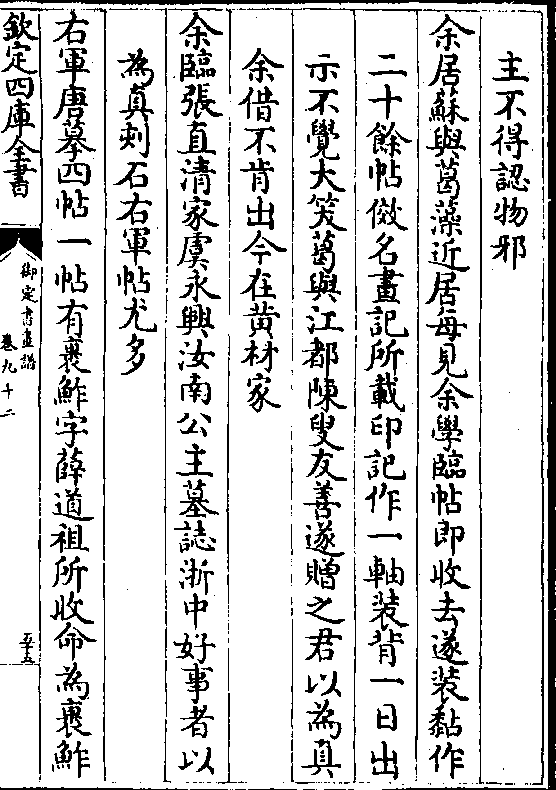 主不得認物邪
余居蘇與葛藻近居每見余學臨帖即收去遂装黏作
二十餘帖倣名畫記所載印記作一軸装背一日出
示不覺大笑葛與江都陳叟友善遂贈之君以為真
余借不肯出今在黄材家
余臨張直清家虞永興汝南公主墓誌浙中好事者以
為真刻石右軍帖尤多
右軍唐摹四帖一帖有裹鮓字薛道祖所收命為裹鮓
欽定四庫全書
御定書畫譜
卷九十二
五十五